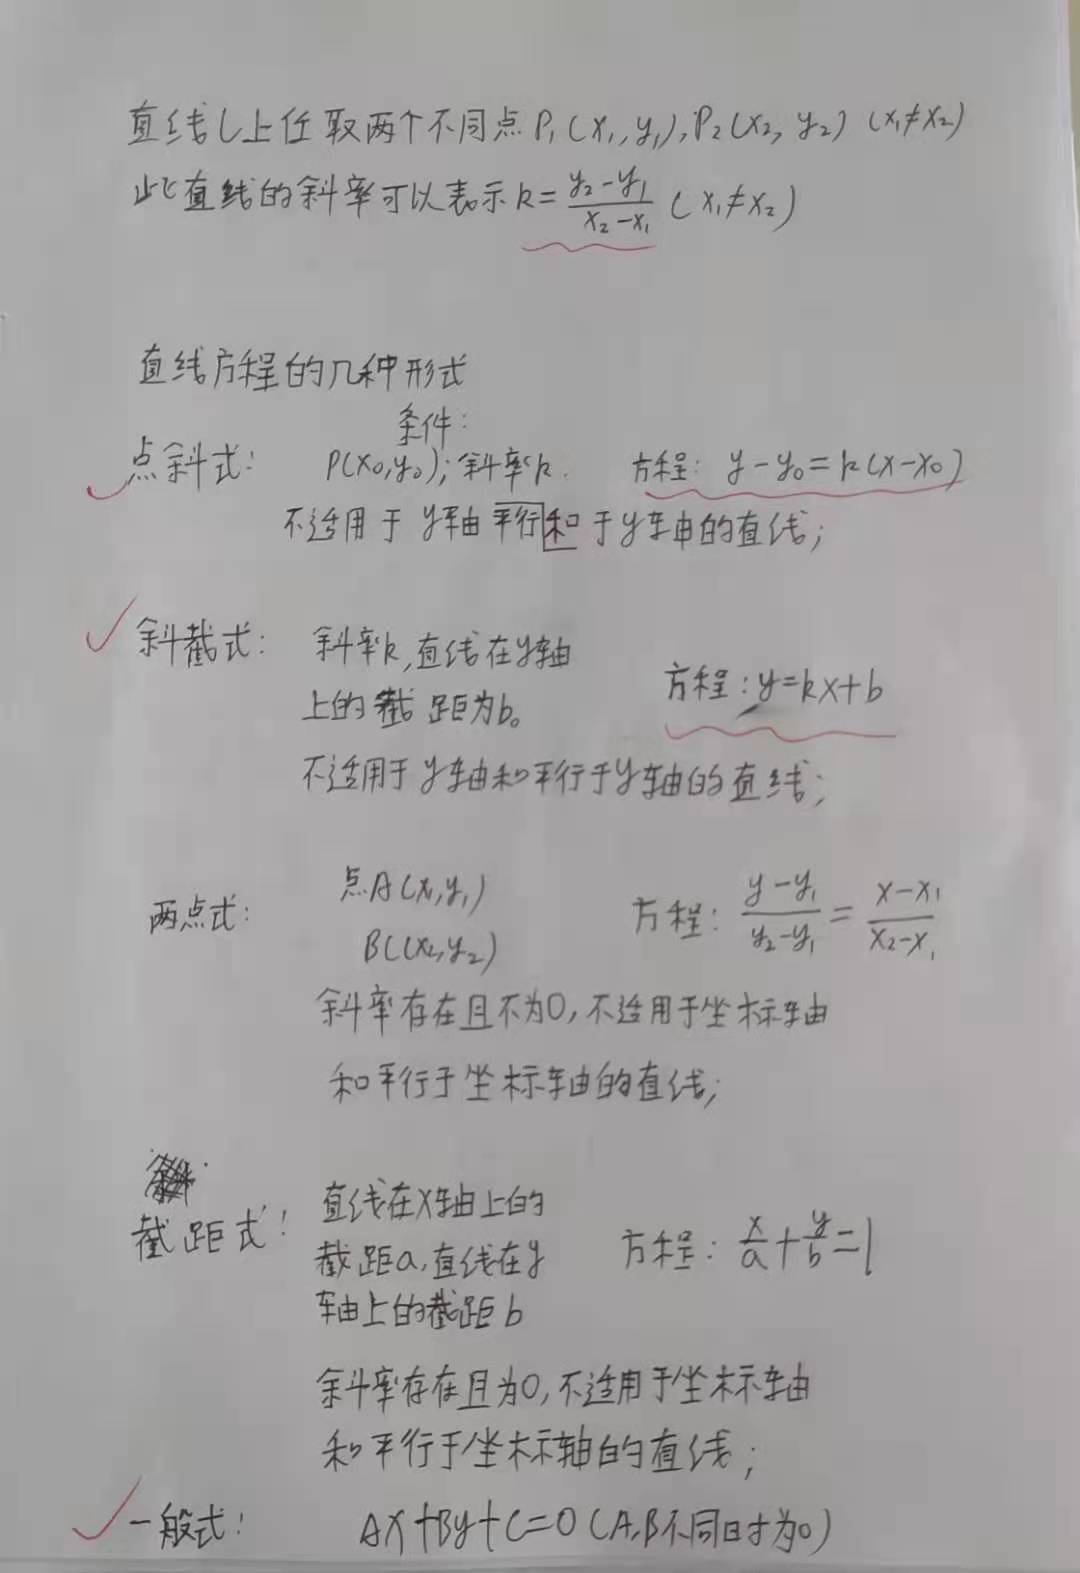 直线l上任取两个不同点P₁(x₁,y₁),P₂(x₂,y₂)(x₁≠x₂)
此直线的斜率可以表示k=(y₂-y₁)/(x₂-x₁)(x₁≠x₂)
直线方程的几种形式
条件:
点斜式: P(x₀,y₀);斜率k. 方程: y-y₀=k(x-x₀)
不适用于y轴平行和于y轴的直线;
斜截式: 斜率k,直线在y轴
上的截距为b。 方程:y=kx+b
不适用于y轴和平行于y轴的直线;
两点式: 点A(x₁,y₁) 方程: (y-y₁)/(y₂-y₁)=(x-x₁)/(x₂-x₁)
B((x₂,y₂)
斜率存在且不为0,不适用于坐标轴
和平行于坐标轴的直线;
截距式: 直线在x轴上的
截距a,直线在y 方程: x/a+y/b=1
轴上的截距b
斜率存在且为0,不适用于坐标轴
和平行于坐标轴的直线;
一般式: Ax+By+C=0(A,B不同时为0)